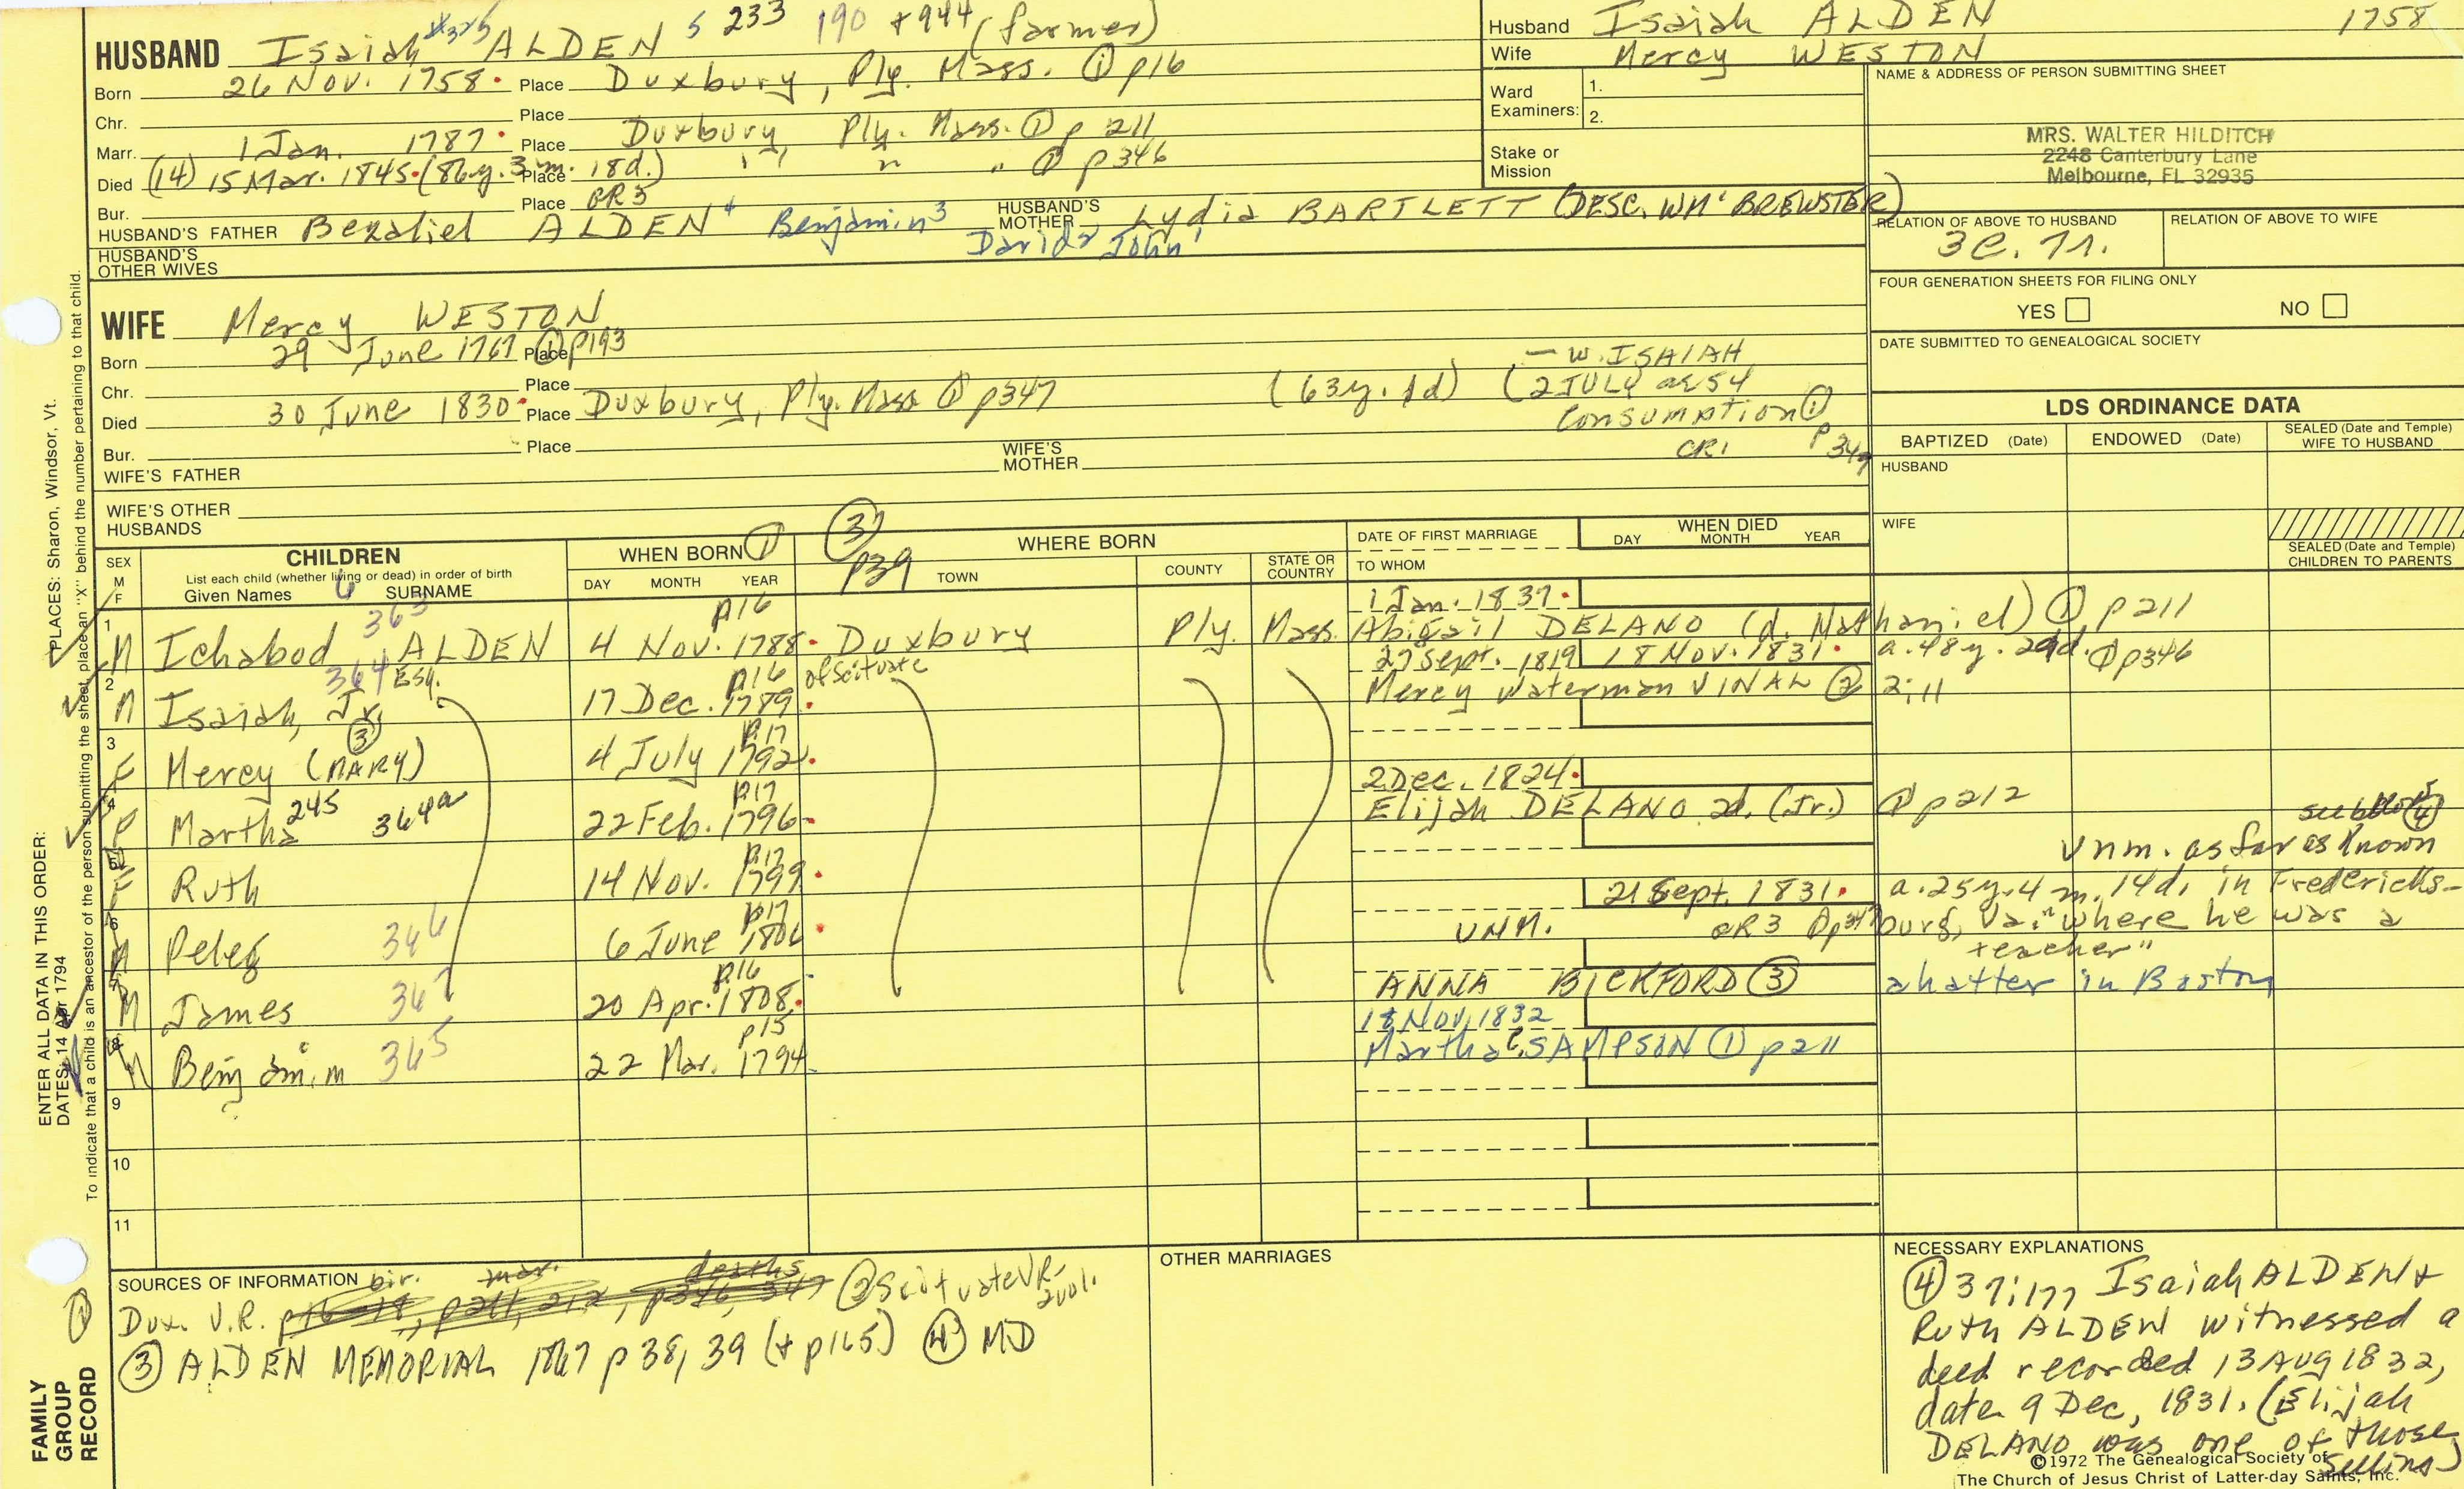 HUSBAND Isaiah #325 ALDEN 5 233 190 +944 (farmer)
Born 26 Nov. 1758. Place Duxbury, Ply. Mass. ① p16
Chr. Place
Marr. 1 Jan. 1787. Place Duxbury, Ply. Mass. ① p 211
Died (14) 15 Mar. 1845. (86y. 3 m. 18d.) Place " " " ① p346
Bur. Place GR3
HUSBAND'S FATHER Bezaliel ALDEN 4 Benjamin 3 David 2 John 1 HUSBAND'S MOTHER Lydia BARTLETT (DESC. WM' BREWSTER)
HUSBAND'S OTHER WIVES
WIFE Mercy WESTON
Born 29 June 1767 Place ① p193
Chr. Place
Died 30 June 1830. Place Duxbury, Ply. Mass ① p347 (63y. 1d) (2 JULY ae 54
— W. ISAIAH
Consumption ①
CR1 p 347
Bur. Place
WIFE'S FATHER WIFE'S MOTHER
WIFE'S OTHER HUSBANDS
Husband Isaiah ALDEN 1758
Wife Mercy WESTON
Ward Examiners: 1.
2.
Stake or Mission
NAME & ADDRESS OF PERSON SUBMITTING SHEET
MRS. WALTER HILDITCH
2248 Canterbury Lane
Melbourne, FL 32935
RELATION OF ABOVE TO HUSBAND RELATION OF ABOVE TO WIFE
FOUR GENERATION SHEETS FOR FILING ONLY
YES NO
DATE SUBMITTED TO GENEALOGICAL SOCIETY
LDS ORDINANCE DATA
BAPTIZED (Date) ENDOWED (Date) SEALED (Date and Temple) WIFE TO HUSBAND
HUSBAND
WIFE
SEALED (Date and Temple) CHILDREN TO PARENTS
SEX M F CHILDREN WHEN BORN ① ③ p39 WHERE BORN DATE OF FIRST MARRIAGE WHEN DIED
List each child (whether living or dead) in order of birth
Given Names 6 SURNAME DAY MONTH YEAR TOWN COUNTY STATE OR COUNTRY TO WHOM DAY MONTH YEAR
1 M Ichabod 363 ALDEN p16 4 Nov. 1788. Duxbury Ply. Mass. 1 Jan. 1837.
Abigail DELANO (d. Nathaniel) ① p 211
2 M Isaiah, Jr. 364 Esq. p16 17 Dec. 1789. of Scituate 27 Sept. 1819 18 Nov. 1831. ① p346
Mercy Waterman VINAL ② 2:11
3 F Mercy ③ (MARY) p17 4 July 1792.
4 F Martha 245 364a p17 22 Feb. 1796. 2 Dec. 1824.
Elijah DELANO 2d. (Jr.) ① p212
5 F Ruth p17 14 Nov. 1799. Unm. as far as known
6 M Peleg 366 p17 6 June 1806 21 Sept. 1831. a. 25y. 4 m. 14d. in Fredericks-
UNM. GR3 ① p347 burg, Va. "where he was a
teacher"
7 M James 367 p16 20 Apr. 1808. ANNA BICKFORD ③ a hatter in Boston
8 M Benjamin 365 p15 22 Mar. 1794. 18 Nov. 1832
Martha C. SAMPSON ① p 211
9
10
11
SOURCES OF INFORMATION bir. mar. deaths
① Dux. V.R. ② Scituate VR- 2 vol.
③ ALDEN MEMORIAL 1867 p 38, 39 (+ p165) ④ MD
OTHER MARRIAGES
NECESSARY EXPLANATIONS
④ 37:177 Isaiah ALDEN +
Ruth ALDEN witnessed a
deed recorded 13 Aug 1832,
date 9 Dec, 1831. (Elijah
DELANO was one of those
selling)
©1972 The Genealogical Society of
The Church of Jesus Christ of Latter-day Saints, Inc.
ENTER ALL DATA IN THIS ORDER:
DATES: 14 Apr 1794
PLACES: Sharon, Windsor, Vt.
To indicate that a child is an ancestor of the person submitting the sheet, place an "X" behind the number pertaining to that child.
FAMILY
GROUP
RECORD